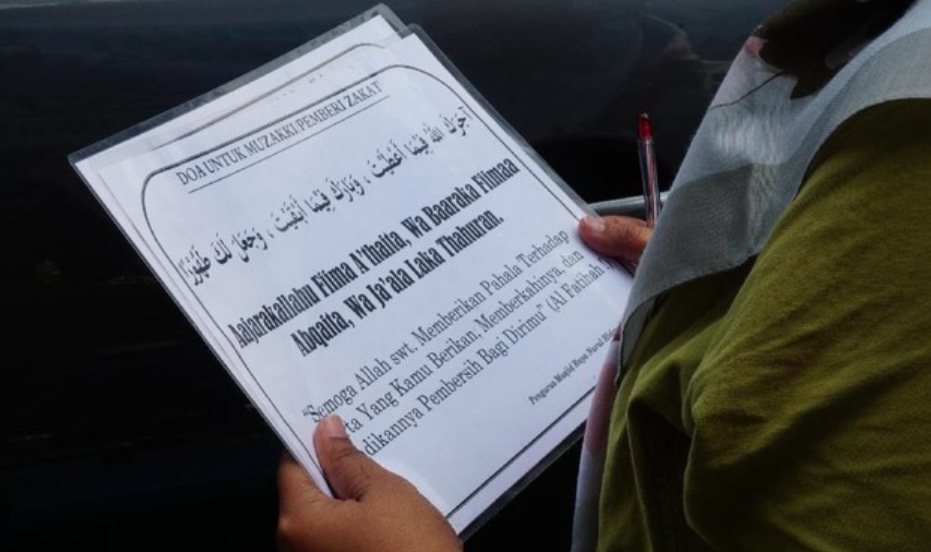 DOA UNTUK MUZAKKI PEMBERI ZAKAT
آجَرَكَ اللهُ فِيْمَا أَعْطَيْتَ ، وَبَارَكَ فِيْمَا أَبْقَيْتَ ، وَجَعَلَ لَكَ طَهُوْرًا
Aajarakallahu Fiima A'thaita, Wa Baaraka Fiimaa
Abqaita, Wa Ja'ala Laka Thahuran.
"Semoga Allah swt. Memberikan Pahala Terhadap
Yang Kamu Berikan, Memberkahinya, dan
Pembersih Bagi Dirimu" (Al Fatihah
Pengurus Masjid Raya Nurul